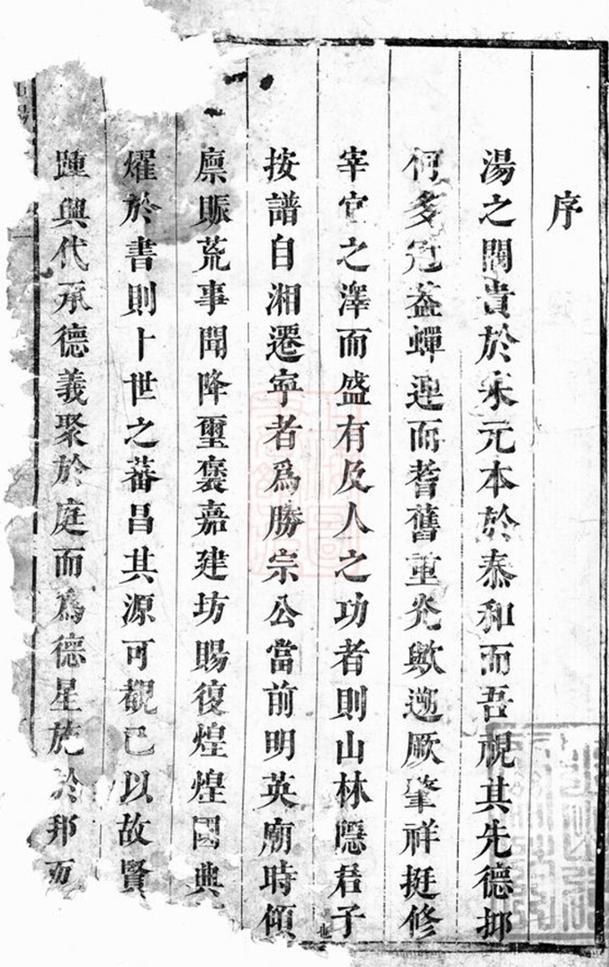 序
湯之閥貴於宋元本於泰和而吾視其先德抑
何多冠蓋蟬連而耆舊重光歟遡厥肇祥挺修
宰官之澤而盛有及人之功者則山林隱君子
按譜自湘遷寧者爲勝宗公當前明英廟時傾
廪賑荒事聞降璽褒嘉建坊賜復煌煌國典
燿於書則十世之蕃昌其源可覩已以故賢
踵興代承德義聚於庭而爲德星施於邦而